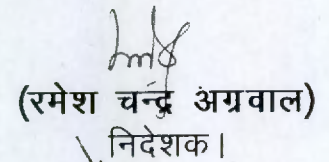 (रमेश चन्द्र अग्रवाल)
निदेशक।